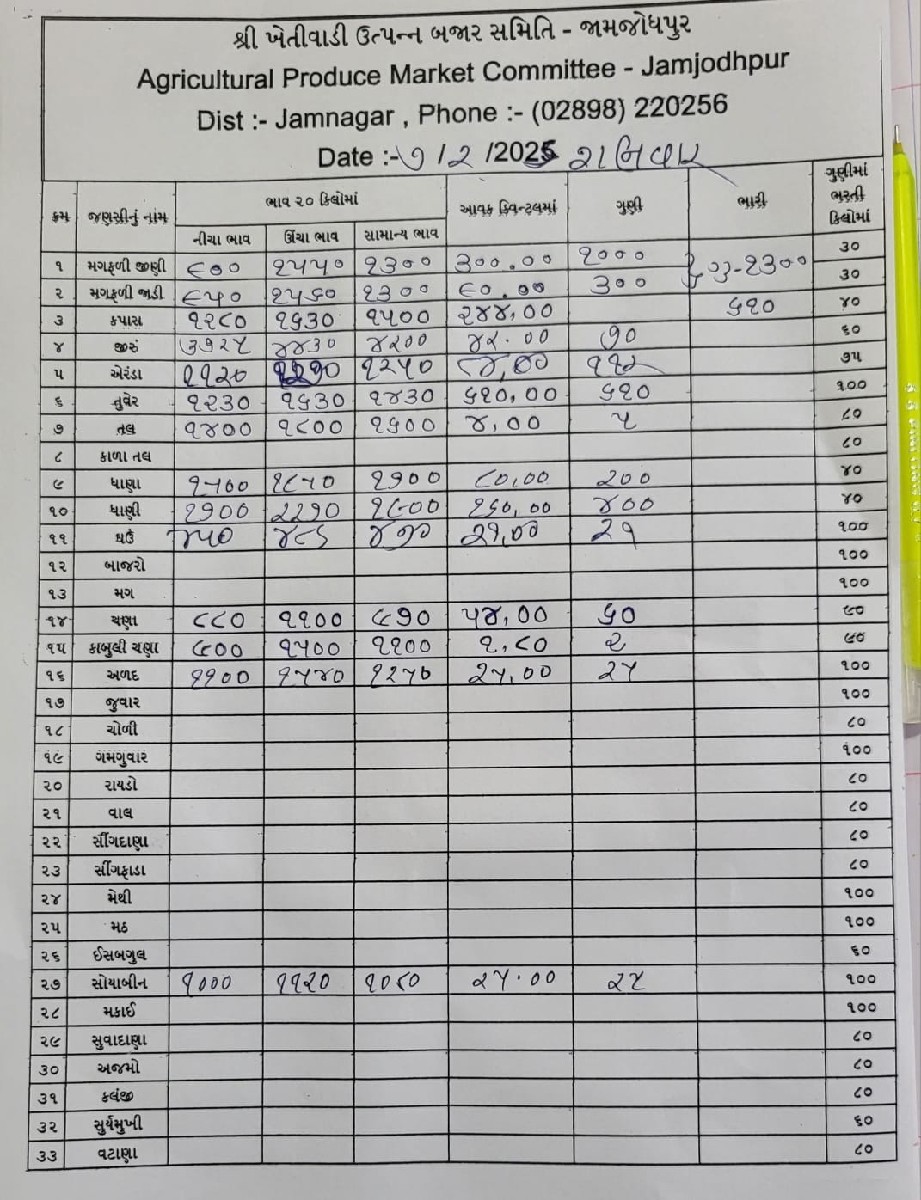 શ્રી ખેતીવાડી ઉત્પન્ન બજાર સમિતિ - જામજોધપુર
Agricultural Produce Market Committee - Jamjodhpur
Dist :- Jamnagar , Phone :- (02898) 220256
Date :- ૭ /૨ /2026 શનિવાર
ક્રમ જણસીનું નામ ભાવ ૨૦ કિલોમાં આવક ક્વિન્ટલમાં ગુણી ભારી ગુણીમાં ભરતી કિલોમાં
નીચા ભાવ ઊંચા ભાવ સામાન્ય ભાવ
૧ મગફળી જીણી ૯૦૦ ૧૫૫૦ ૧૩૦૦ ૩૦૦.૦૦ ૧૦૦૦ ૩૦
૨ મગફળી જાડી ૯૫૦ ૧૫૬૦ ૧૩૦૦ ૯૦.૦૦ ૩૦૦ ૩૦
૩ કપાસ ૧૨૮૦ ૧૬૩૦ ૧૫૦૦ ૨૪૪,૦૦ ૬૧૦ ૪૦
૪ જીરૂં ૩૭૨૫ ૪૪૩૦ ૪૨૦૦ ૪૨.૦૦ ૭૦ ૬૦
૫ એરંડા ૧૧૨૦ ૧૨૫૦ ૮૪,૦૦ ૧૧૨ ૭૫
૬ તુવેર ૧૨૩૦ ૧૬૩૦ ૧૪૩૦ ૬૧૦,૦૦ ૬૧૦ ૧૦૦
૭ તલ ૧૪૦૦ ૧૮૦૦ ૧૬૦૦ ૪,૦૦ ૫ ૮૦
૮ કાળા તલ ૮૦
૯ ધાણા ૧૫૦૦ ૧૮૫૦ ૧૭૦૦ ૮૦,૦૦ ૨૦૦ ૪૦
૧૦ ધાણી ૧૭૦૦ ૨૨૧૦ ૧૯૦૦ ૧૬૦,૦૦ ૪૦૦ ૪૦
૧૧ ઘઉં ૪૫૦ ૪૯૬ ૪૭૦ ૨૧,૦૦ ૨૧ ૧૦૦
૧૨ બાજરો ૧૦૦
૧૩ મગ ૧૦૦
૧૪ ચણા ૮૮૦ ૧૧૦૦ ૯૭૦ ૫૪,૦૦ ૬૦ ૯૦
૧૫ કાબુલી ચણા ૯૦૦ ૧૫૦૦ ૧૧૦૦ ૧.૮૦ ૨ ૯૦
૧૬ અળદ ૧૧૦૦ ૧૫૪૦ ૧૨૫૦ ૨૫,૦૦ ૨૫ ૧૦૦
૧૭ જુવાર ૧૦૦
૧૮ ચોળી ૮૦
૧૯ ગમગુવાર ૧૦૦
૨૦ રાયડો ૮૦
૨૧ વાલ ૮૦
૨૨ સીંગદાણા ૮૦
૨૩ સીંગફાડા ૮૦
૨૪ મેથી ૧૦૦
૨૫ મઠ ૧૦૦
૨૬ ઈસબગુલ ૬૦
૨૭ સોયાબીન ૧૦૦૦ ૧૧૨૦ ૧૦૮૦ ૨૫.૦૦ ૨૫ ૧૦૦
૨૮ મકાઈ ૧૦૦
૨૯ સુવાદાણા ૮૦
૩૦ અજમો ૮૦
૩૧ કલંજી ૮૦
૩૨ સુર્યમુખી ૬૦
૩૩ વટાણા ૮૦